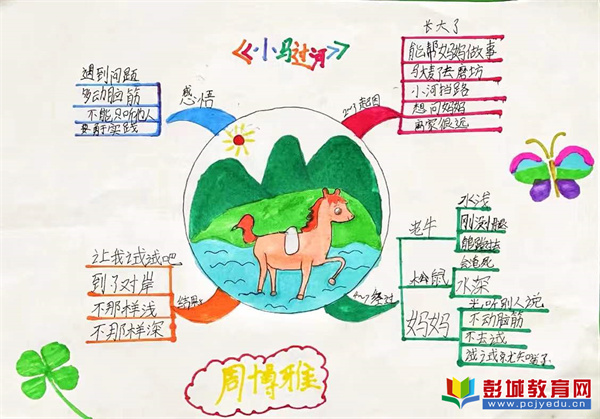 《小马过河》
长大了
能帮妈妈做事
驮麦子去磨坊
小河挡路
想问妈妈
离家很远
起因
遇到问题
多动脑筋
不能只听他人
要勇于实践
感悟
水浅
老牛
刚没小腿
能蹚过去
会淹死
松鼠
水深
妈妈
光听别人说
不动脑筋
不去试
试试就知道了
经过
让我试试吧
到了对岸
不那样浅
不那样深
结果
周博雅
彭城教育网
www.pcjyedu.cn